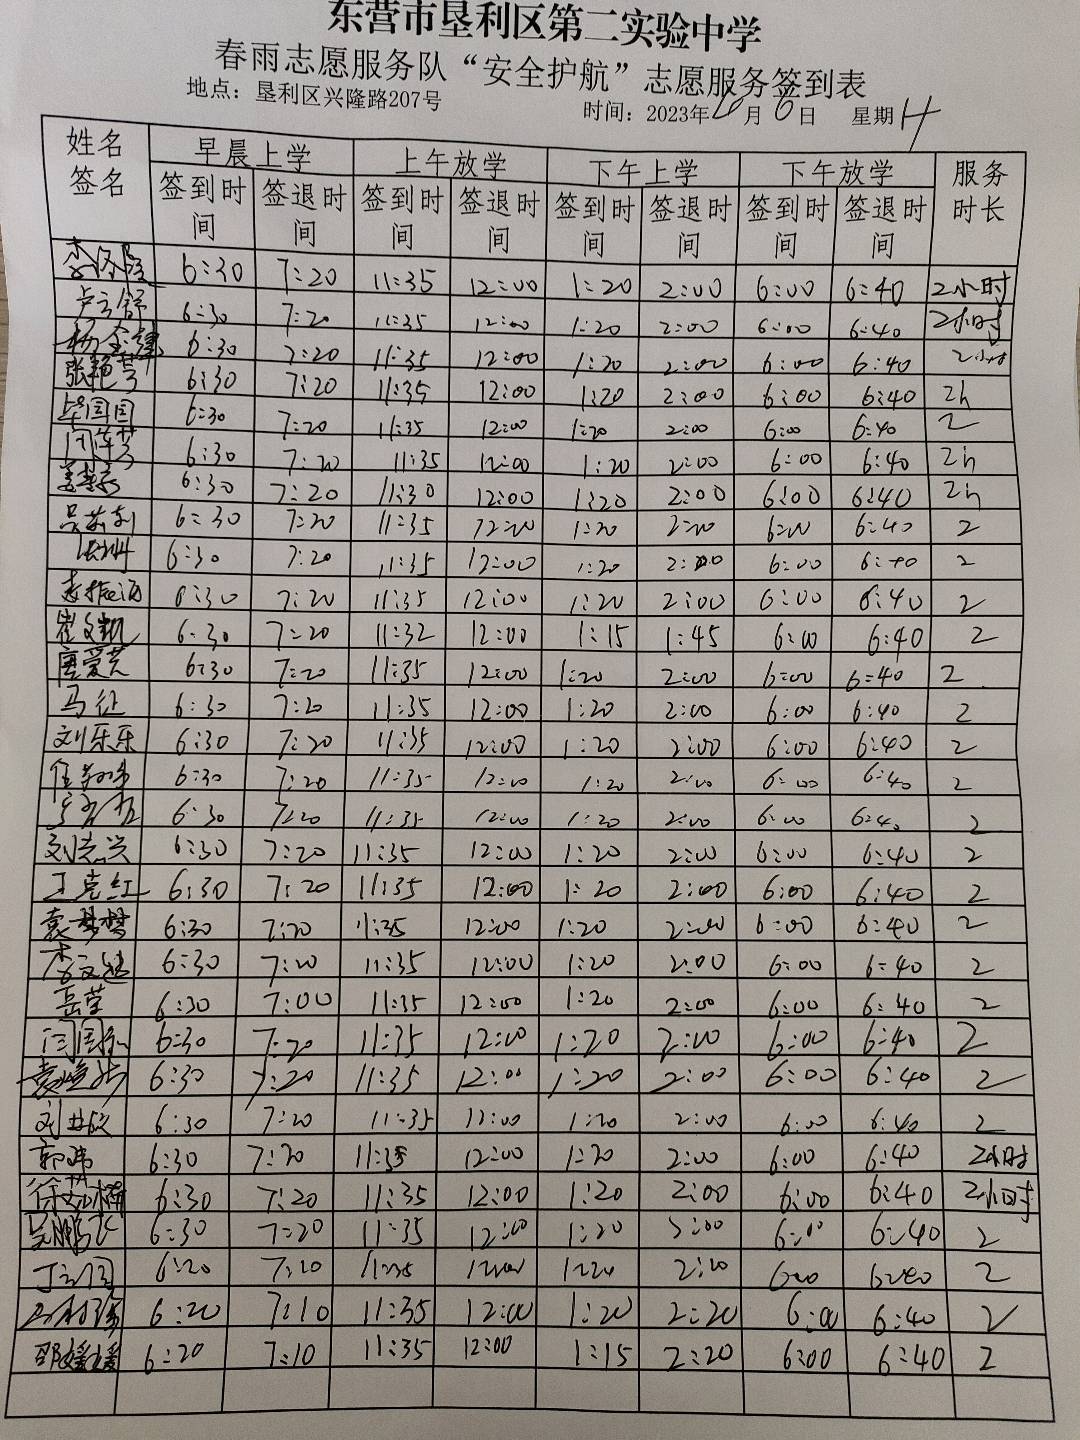 东营市垦利区第二实验中学
春雨志愿服务队“安全护航”志愿服务签到表
地点：垦利区兴隆路207号 时间：2023年 月6日 星期4
姓名签名 早晨上学 上午放学 下午上学 下午放学 服务时长
签到时间 签退时间 签到时间 签退时间 签到时间 签退时间 签到时间 签退时间
6:30 7:20 11:35 12:00 1:20 2:00 6:00 6:40 2小时
卢立舒 6:30 7:20 11:35 12:00 1:20 2:00 6:00 6:40 2小时
6:30 7:20 11:35 12:00 1:20 2:00 6:00 6:40 2小时
张艳芳 6:30 7:20 11:35 12:00 1:20 2:00 6:00 6:40 2h
6:30 7:20 11:35 12:00 1:20 2:00 6:00 6:40 2
6:30 7:20 11:35 12:00 1:20 2:00 6:00 6:40 2h
6:30 7:20 11:30 12:00 1:20 2:00 6:00 6:40 2h
6:30 7:20 11:35 12:00 1:20 2:00 6:00 6:40 2
6:30 7:20 11:35 12:00 1:20 2:00 6:00 6:40 2
6:30 7:20 11:35 12:00 1:20 2:00 6:00 6:40 2
崔文凯 6:30 7:20 11:32 12:00 1:15 1:45 6:00 6:40 2
唐爱芹 6:30 7:20 11:35 12:00 1:20 2:00 6:00 6:40 2
马征 6:30 7:20 11:35 12:00 1:20 2:00 6:00 6:40 2
刘乐乐 6:30 7:20 11:35 12:00 1:20 2:00 6:00 6:40 2
6:30 7:20 11:35 12:00 1:20 2:00 6:00 6:40 2
6:30 7:20 11:35 12:00 1:20 2:00 6:00 6:40 2
刘志兴 6:30 7:20 11:35 12:00 1:20 2:00 6:00 6:40 2
王克红 6:30 7:20 11:35 12:00 1:20 2:00 6:00 6:40 2
袁梦梦 6:30 7:20 11:35 12:00 1:20 2:00 6:00 6:40 2
6:30 7:20 11:35 12:00 1:20 2:00 6:00 6:40 2
岳莹 6:30 7:00 11:35 12:00 1:20 2:00 6:00 6:40 2
6:30 7:20 11:35 12:00 1:20 2:00 6:00 6:40 2
6:30 7:20 11:35 12:00 1:20 2:00 6:00 6:40 2
6:30 7:20 11:35 12:00 1:20 2:00 6:00 6:40 2
郭玮 6:30 7:20 11:35 12:00 1:20 2:00 6:00 6:40 2小时
6:30 7:20 11:35 12:00 1:20 2:00 6:00 6:40 2小时
吴鹏飞 6:30 7:20 11:35 12:00 1:20 2:00 6:00 6:40 2
6:20 7:10 11:35 12:00 1:20 2:20 6:00 6:40 2
6:20 7:10 11:35 12:00 1:20 2:20 6:00 6:40 2
邵媛媛 6:20 7:10 11:35 12:00 1:15 2:20 6:00 6:40 2